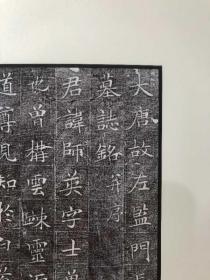 大唐故左監門
墓誌銘并序
君諱師英字士
也曾構雲疎靈源
道尊見知於